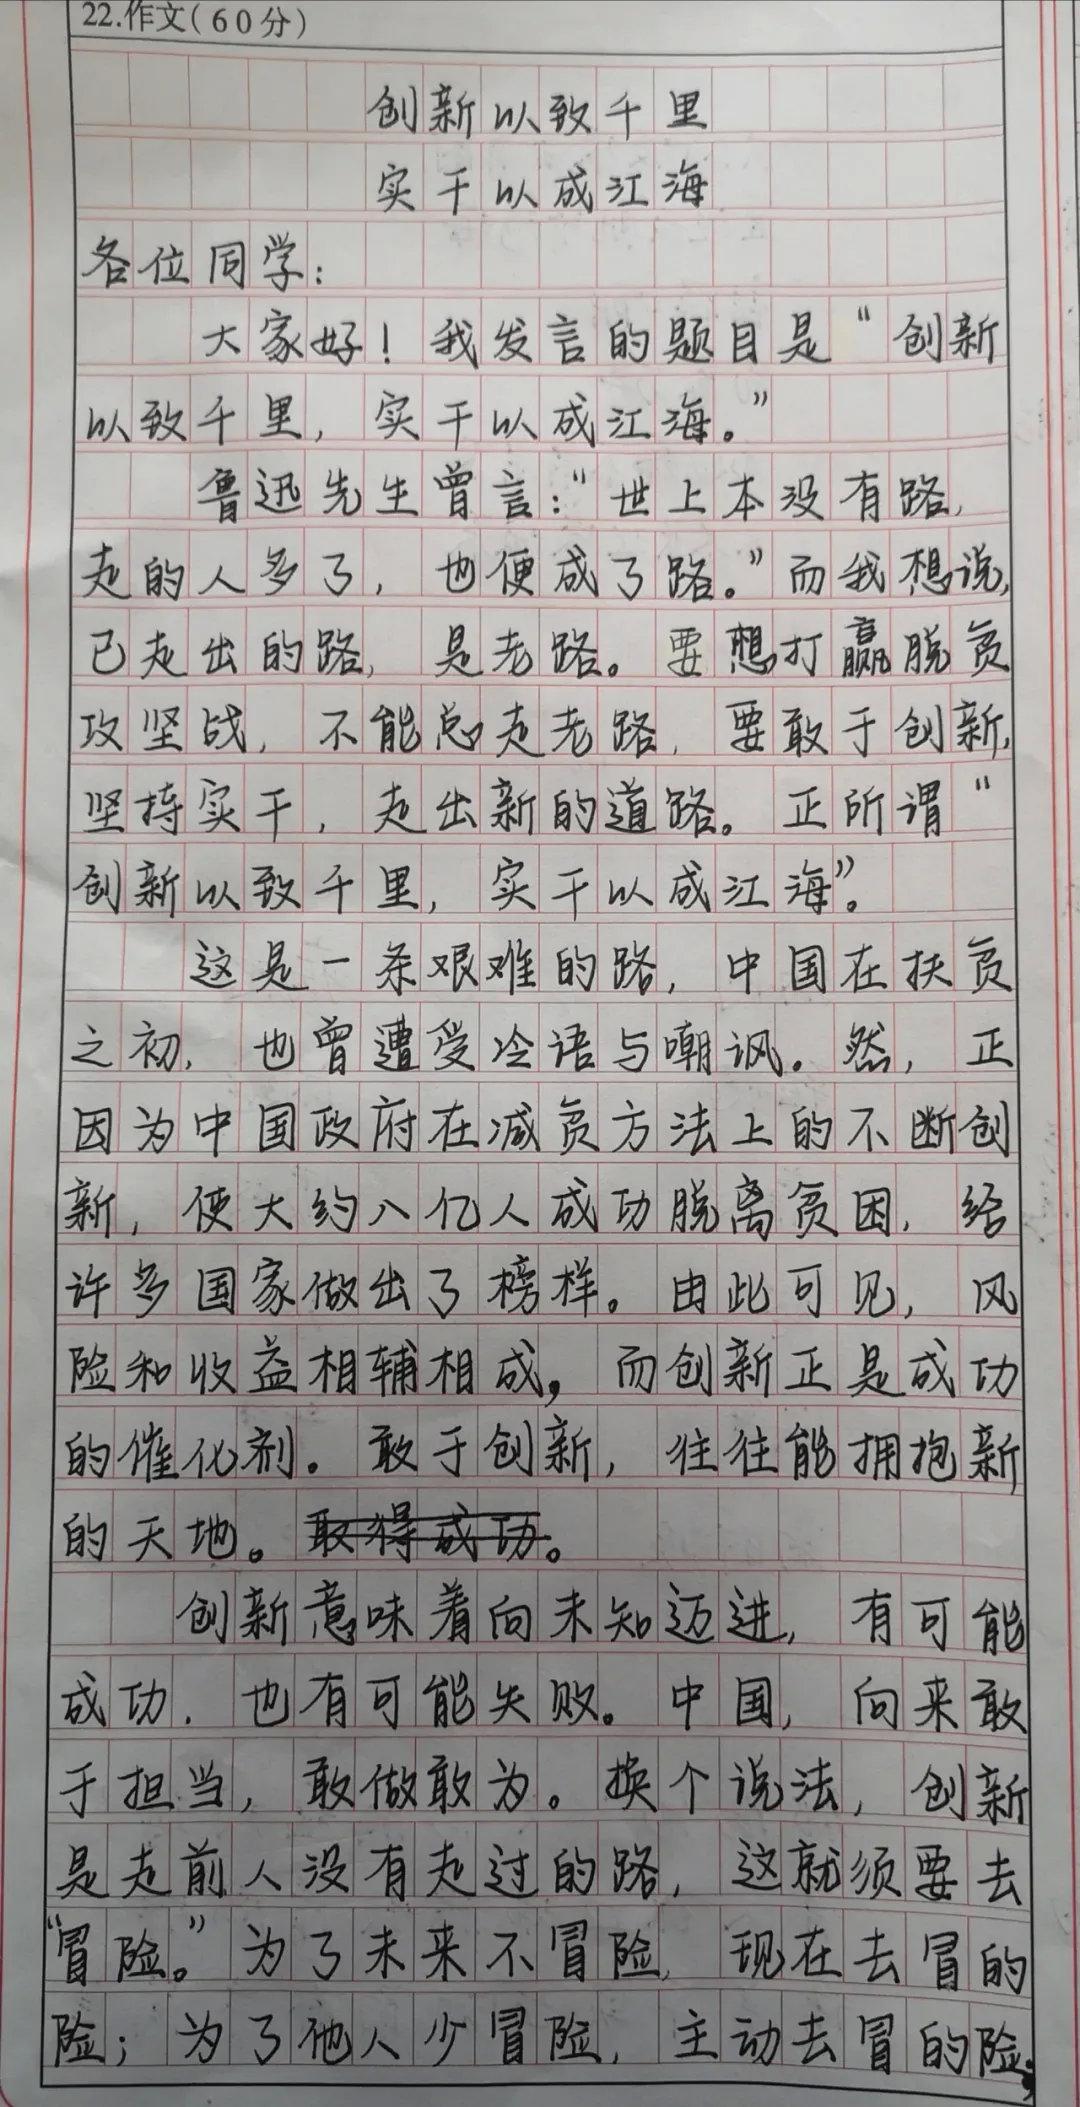 22.作文(60分)
创新以致千里
实干以成江海
各位同学:
大家好!我发言的题目是“创新
以致千里,实干以成江海。”
鲁迅先生曾言:“世上本没有路,
走的人多了,也便成了路。”而我想说,
已走出的路,是老路。要想打赢脱贫
攻坚战,不能总走老路,要敢于创新,
坚持实干,走出新的道路。正所谓“
创新以致千里,实干以成江海”。
这是一条艰难的路,中国在扶贫
之初,也曾遭受冷语与嘲讽。然,正
因为中国政府在减贫方法上的不断创
新,使大约八亿人成功脱离贫困,给
许多国家做出了榜样。由此可见,风
险和收益相辅相成,而创新正是成功
的催化剂。敢于创新,往往能拥抱新
的天地。取得成功。
创新意味着向未知迈进,有可能
成功,也有可能失败。中国,向来敢
于担当,敢做敢为。换个说法,创新
是走前人没有走过的路,这就须要去
“冒险。”为了未来不冒险,现在去冒的
险;为了他人少冒险,主动去冒的险;